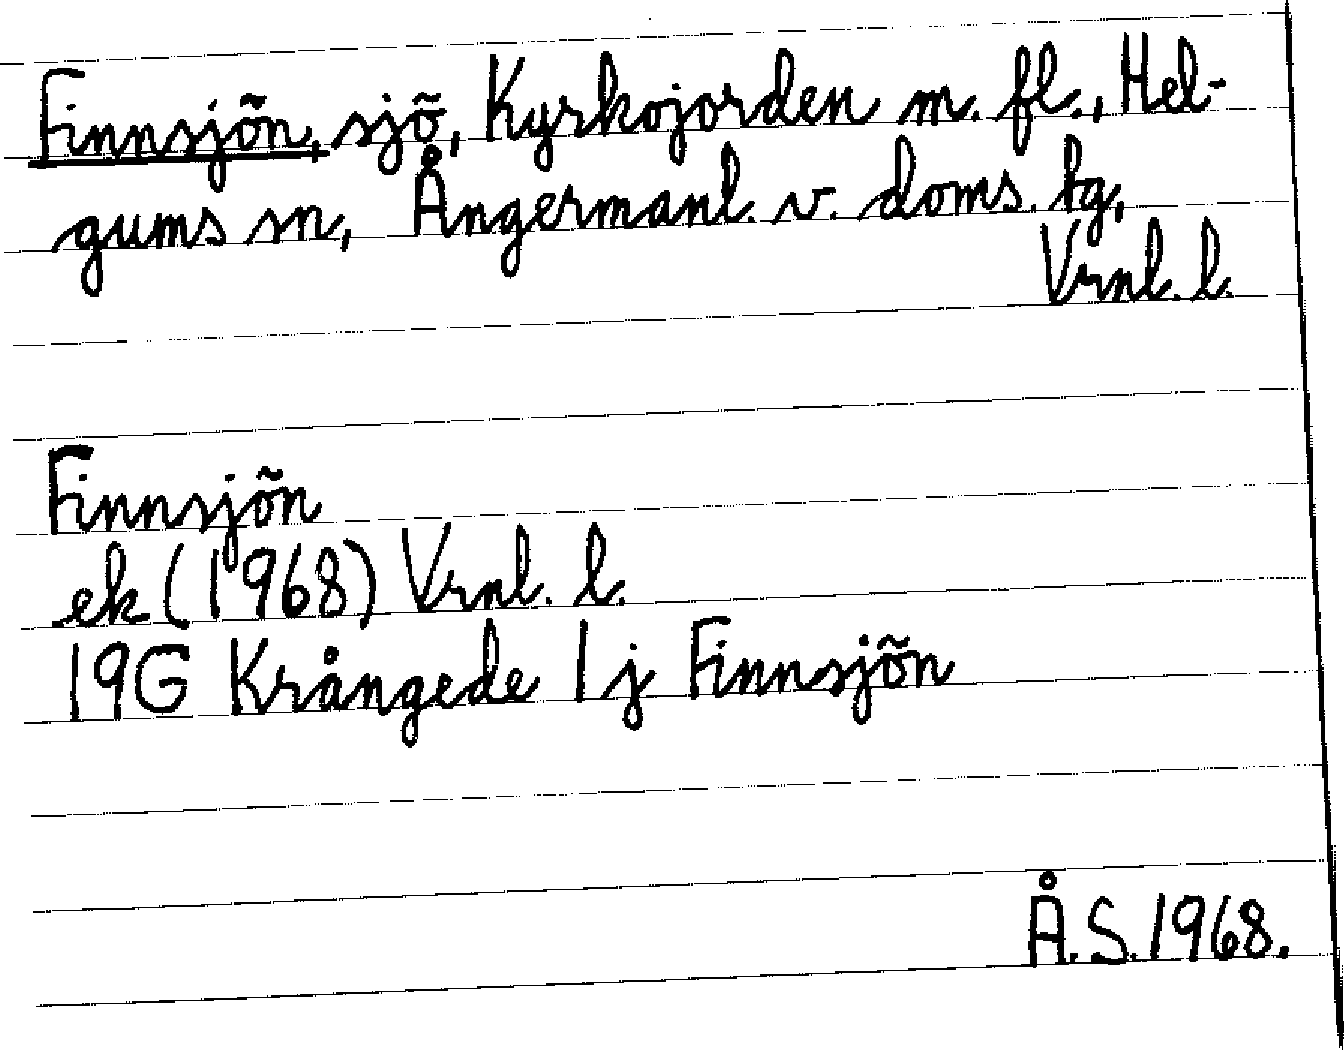 Finnsjön, sjö, Kyrkojorden m. fl., Hel-
gums sn, Ångermanl. v. doms. tg,
Vrnl. l.
Finnsjön
ek (1968) Vrnl. l.
19G Krångede 1j Finnsjön
Å.S. 1968.